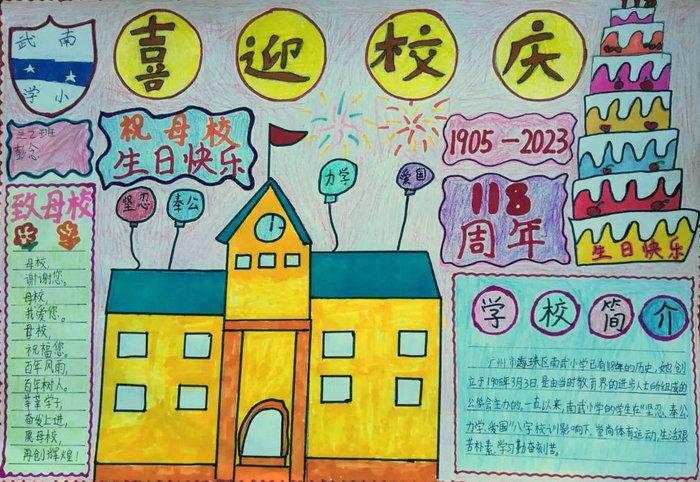 武 南
学 小
喜迎校庆
三2班
祝母校
生日快乐
1905-2023
118
周年
生日快乐
坚忍
奉公
力学
爱国
致母校
母校,
谢谢您。
母校,
我爱您。
母校,
祝福您。
百年风雨,
百年树人。
莘莘学子,
奋发上进,
愿母校,
再创辉煌!
学校简介
广州市海珠区南武小学已有118年的历史,她创
立于1905年3月3日,是由当时教育界的进步人士所组成的
公益会主办的。一直以来,南武小学的学生在“坚忍、奉公
力学、爱国”八字校训影响下,崇尚体育运动,生活艰
苦朴素,学习勤奋刻苦。